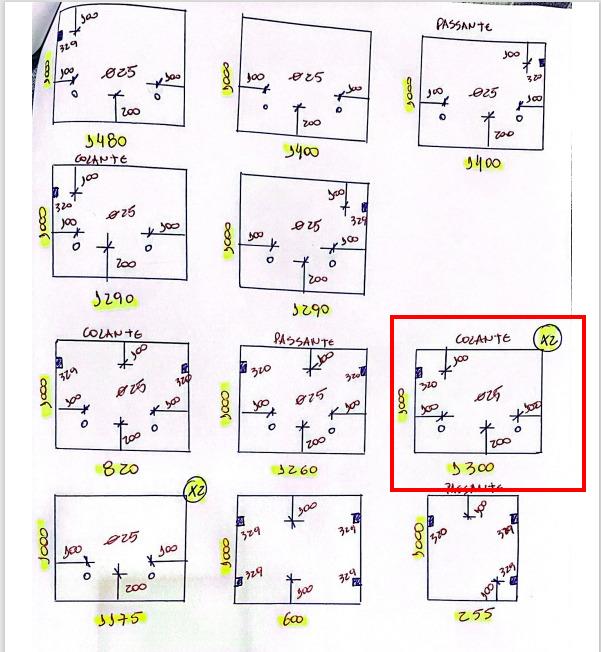 100
329
1000
100 Ø25 100
0 0
200
1480
1000
100 Ø25 100
0 0
200
1400
PASSANTE
100
320
1000
100 Ø25 100
0 0
200
1400
COLANTE
100
320
1000
100 Ø25 100
0 0
200
1290
100
329
1000
100 Ø25 100
0 0
200
1290
COLANTE
329 100 320
1000
100 Ø25 100
0 0
200
820
PASSANTE
320 100 320
1000
100 Ø25 100
0 0
200
1260
COLANTE X2
100
320
1000
100 Ø25 100
0 0
200
1300
X2
1000
100 Ø25 100
0 0
200
1175
329 100 329
1000
329 329
100
600
PASSANTE
320 100 329
1000
329
100
255